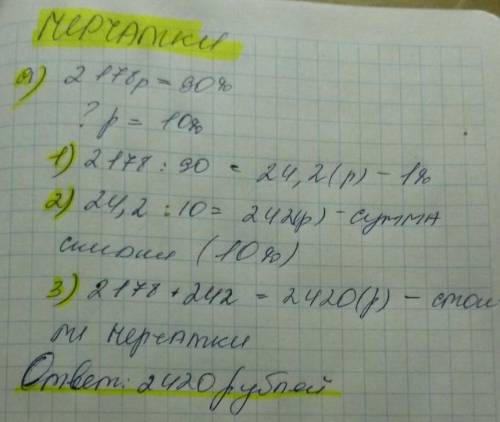 МЕРЧАТКИ
а) 2178р = 90%
? р = 10%
1) 2178 : 90 = 24,2(р) - 1%
2) 24,2 : 10 = 242(р) - сумма
(10%)
3) 2178 + 242 = 2420(р) - стои
ли мерчатки
Ответ: 2420 рублей